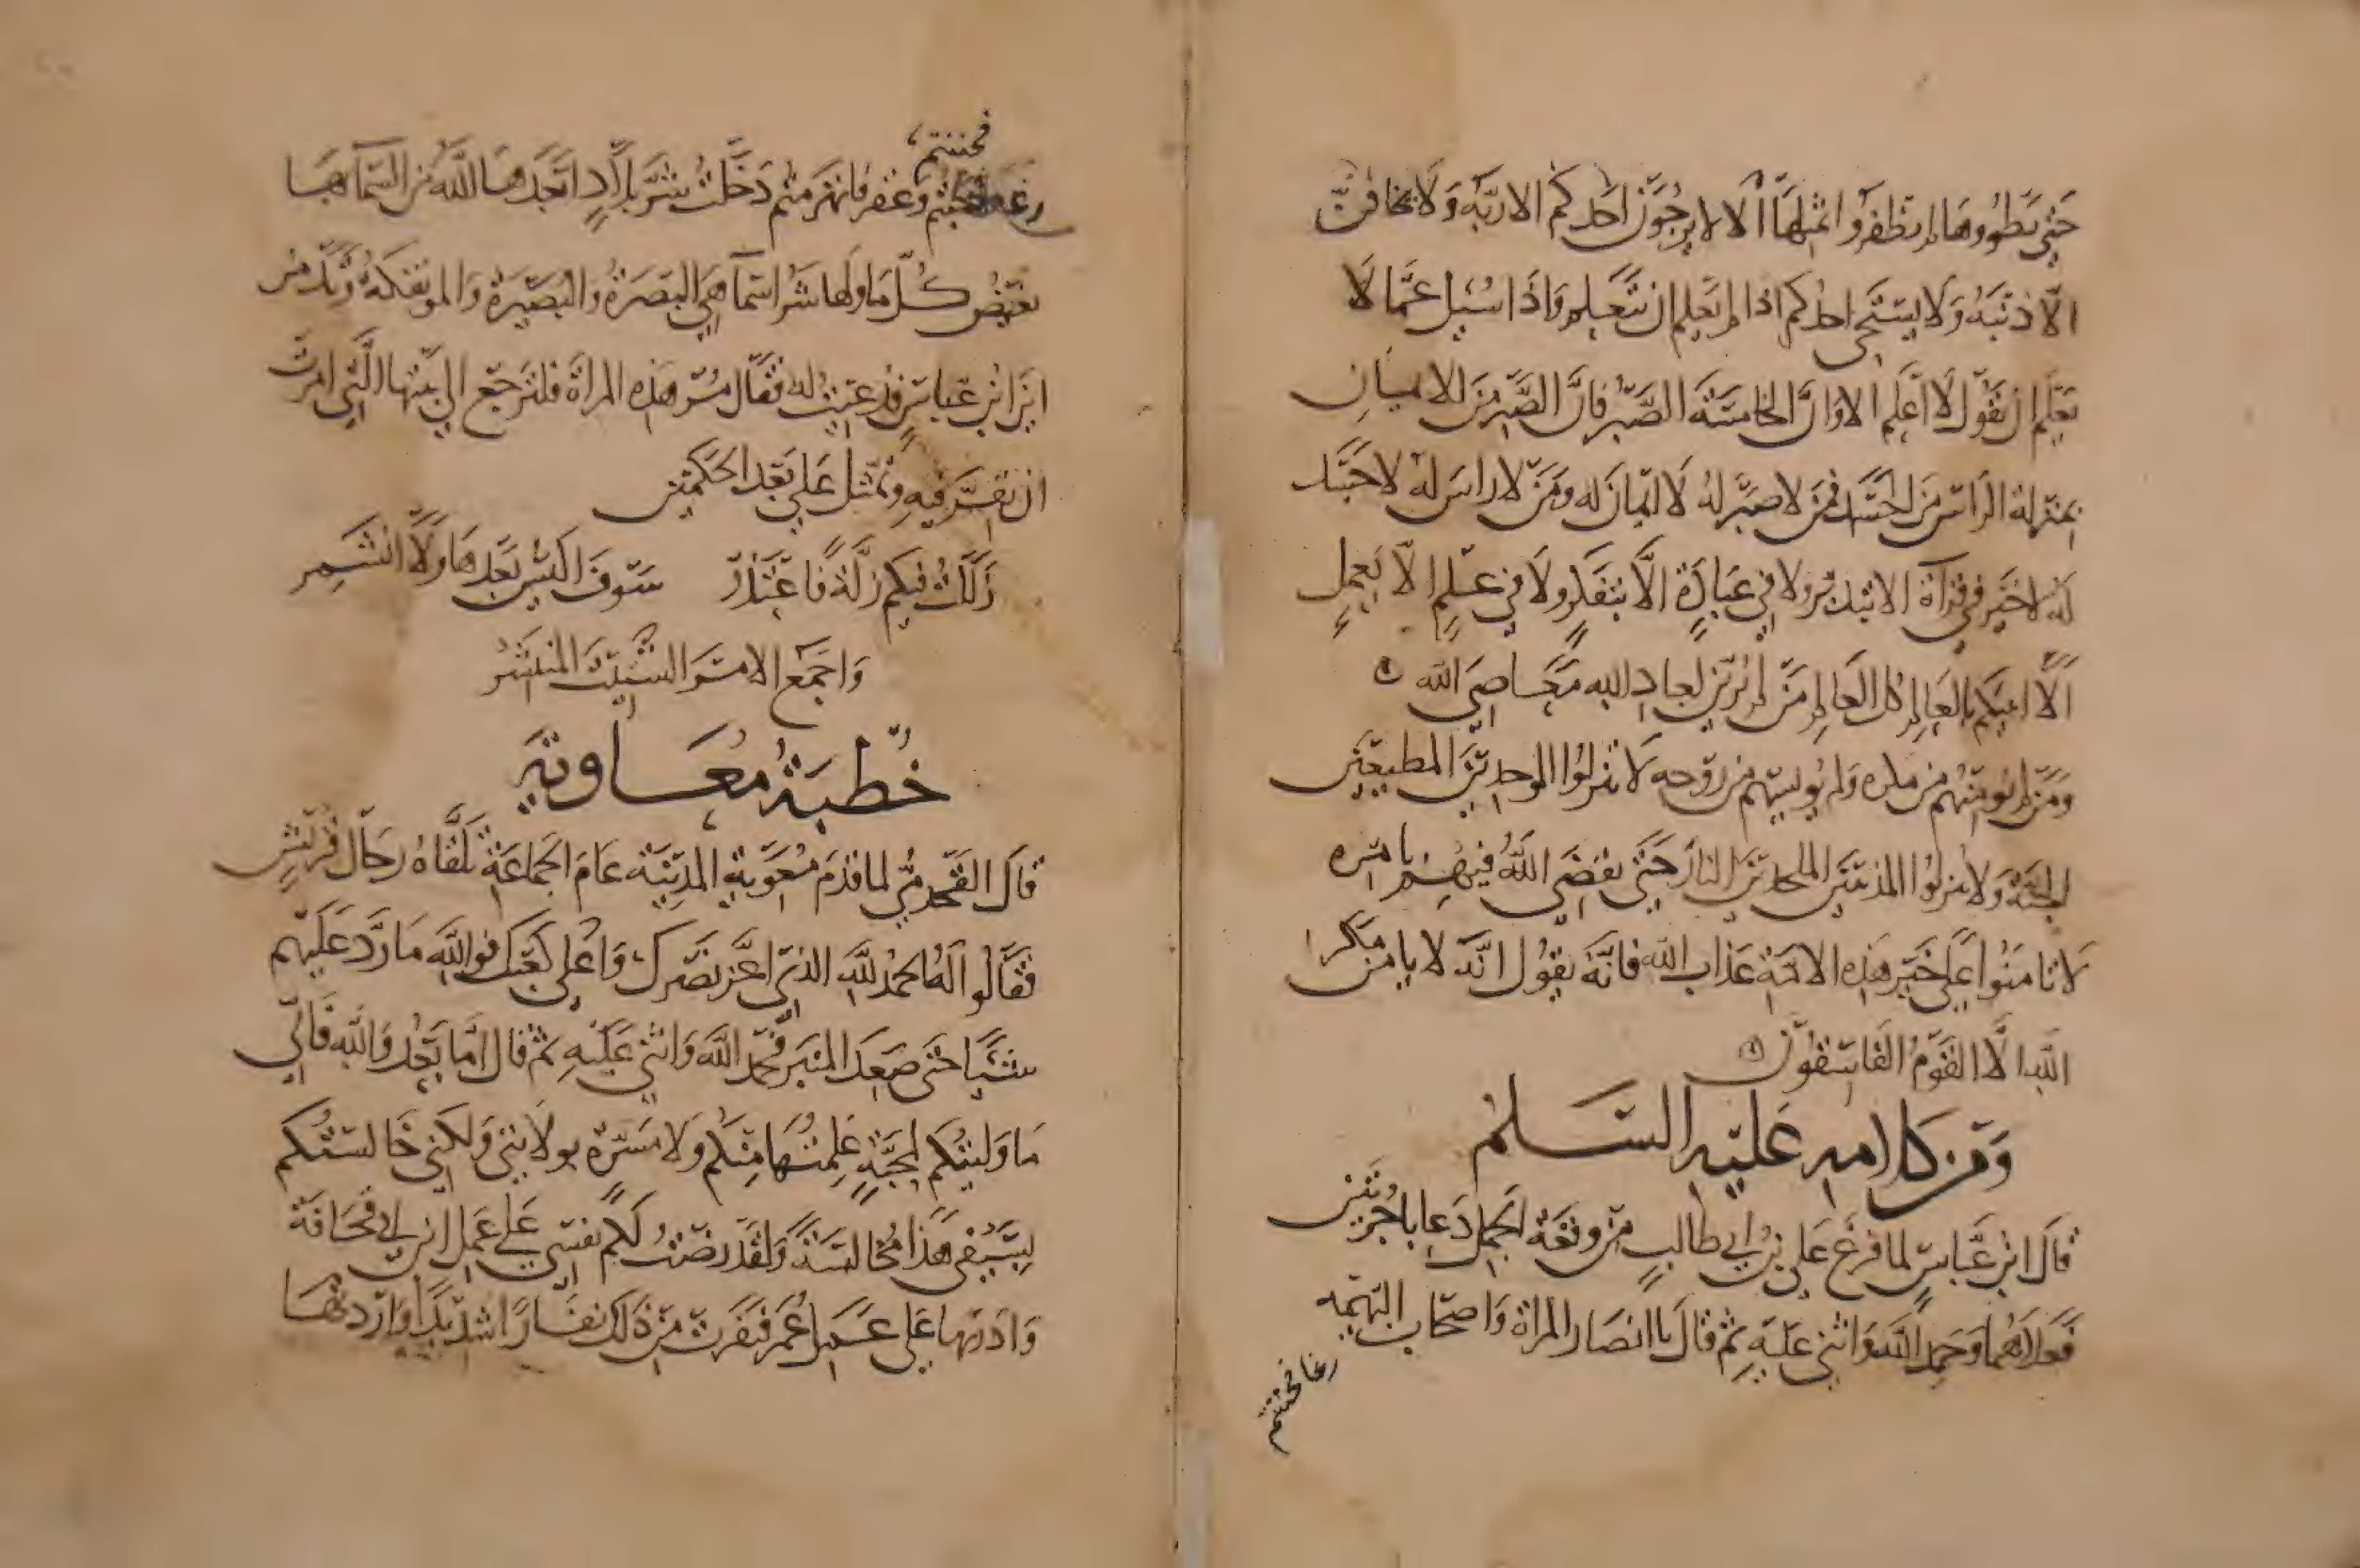 حتي تنطووها لم تظفروا بمثلها الا لا يرجون احدكم الا ربه ولا يخافن
الا ذنبه ولا يستحي احدكم اذا لم يعلم ان يتعلم واذا سئل عما لا
يعلم ان يقول لا اعلم الا وان الخامسة الصبر فان الصبر من الايمان
بمنزلة الراس من الجسد فمن لا صبر له لا ايمان له ومن لا راس له لا جسد
له لا خير في قرآة الا بتدبر ولا في عبادة الا بتفكر ولا في علم الا بعمل
الا انبيكم بالعالم كل العالم من لم يزين لعباد الله معاصي الله
ومن لم يومنهم من مكره ولم يويسهم من روحه لا تنزلوا الموحدين المطيعين
الجنة ولا تنزلوا المذنبين الملحدين النار حتي يقضي الله فيهم بامره
لا تامنوا علي خير هذه الامة عذاب الله فانه يقول انه لا يامن مكر
الله الا القوم الفاسقون
ومن كلامه عليه السلم
قال ابن عباس لما فرغ علي بن ابي طالب من وقعة الجمل دعا باجرتين
فعلاهما وحمد الله واثني عليه ثم قال يا انصار المراة واصحاب البهيمه
رغا فحننتم
فحننتم
رغا وعقر فانهزمتم دخلت شر بلاد ابعدها الله من السما بها
يغيض كل ما ولها شر اسما هي البصرة والبصيرة والموتفكة وتدمر
اين ابن عباس فدعيت له فقال مر هذه المراة فلترجع الي بيتها التي امرت
ان تقر فيه وتمثل علي بعد الحكمين
زللت فيكم زلة فاعتذر سوف اكيس بعدها وانشمر
واجمع الامر الشتيت المنتشر
خطبة معاوية
قال القحذمي لما قدم معوية المدينة عام الجماعة تلقاه رجال قريش
فقالوا له الحمد لله الذي اعز نصرك واعلي كعبك فوالله ما رد عليهم
شيا حتى صعد المنبر فحمد الله واثني عليه ثم قال اما بعد والله فاني
ما وليتكم لمحبة علمتها منكم ولا مسرة بولايتي ولكني خالستكم
بسيفي هذا مخالسة ولقد رضت لكم نفسي علي عمل ابن ابي قحافة
وادرتها علي عمل عمر فنفرت من ذلك نفارا شديدا واردتها